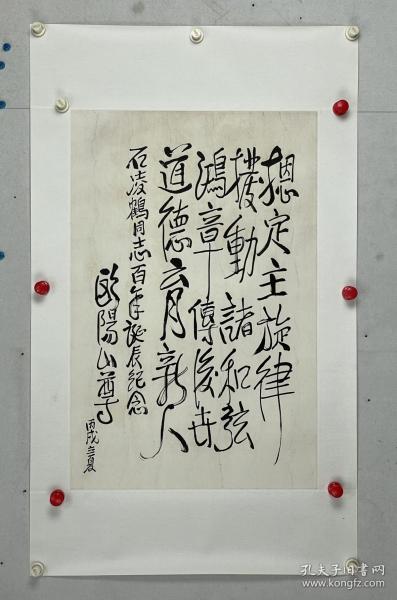 摁定主旋律
拨動諸和弦
鴻章傳後世
道德育新人
石凌鶴同志百年诞辰纪念
欧陽山尊
丙戌立夏
孔夫子旧书网
book.kongfz.com